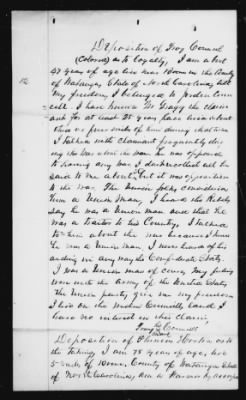 Deposition of Troy Councill
(Colored) as to loyalty, I am about
47 years of age live near Boone in the County
of Watauga State of North Carolina, until
my freedom I belonged to Jordan Coun
cill. I have known Mr Gragg the claim
ant for at least 25 years have lived about
miles of him during that time
I talked with claimant frequently dur
ing the war about the war. he was opposed
to having any war, I dont recollect all he
said to me about it, but it was opposition
to the war. The Union folks considered
him a Union Man, I heard the Rebels
say he was a Union man and that he
was a traitor to his Country, I talked
to him about the war because I knew
he was a Union man. I never heard of his
aiding in any way the Confederate States.
I was a Union man of course, my feelings
were with the Army of the United States
The Union party give me my freedom
I live on the Jordan Councill land I
have no interest in this claim,
Troy Councill
his mark
Deposition of Horton as to
the taking, I am 78 years of age, live
5 miles of Boone, County of Watauga State
of North Carolina, am a Farmer by occupa